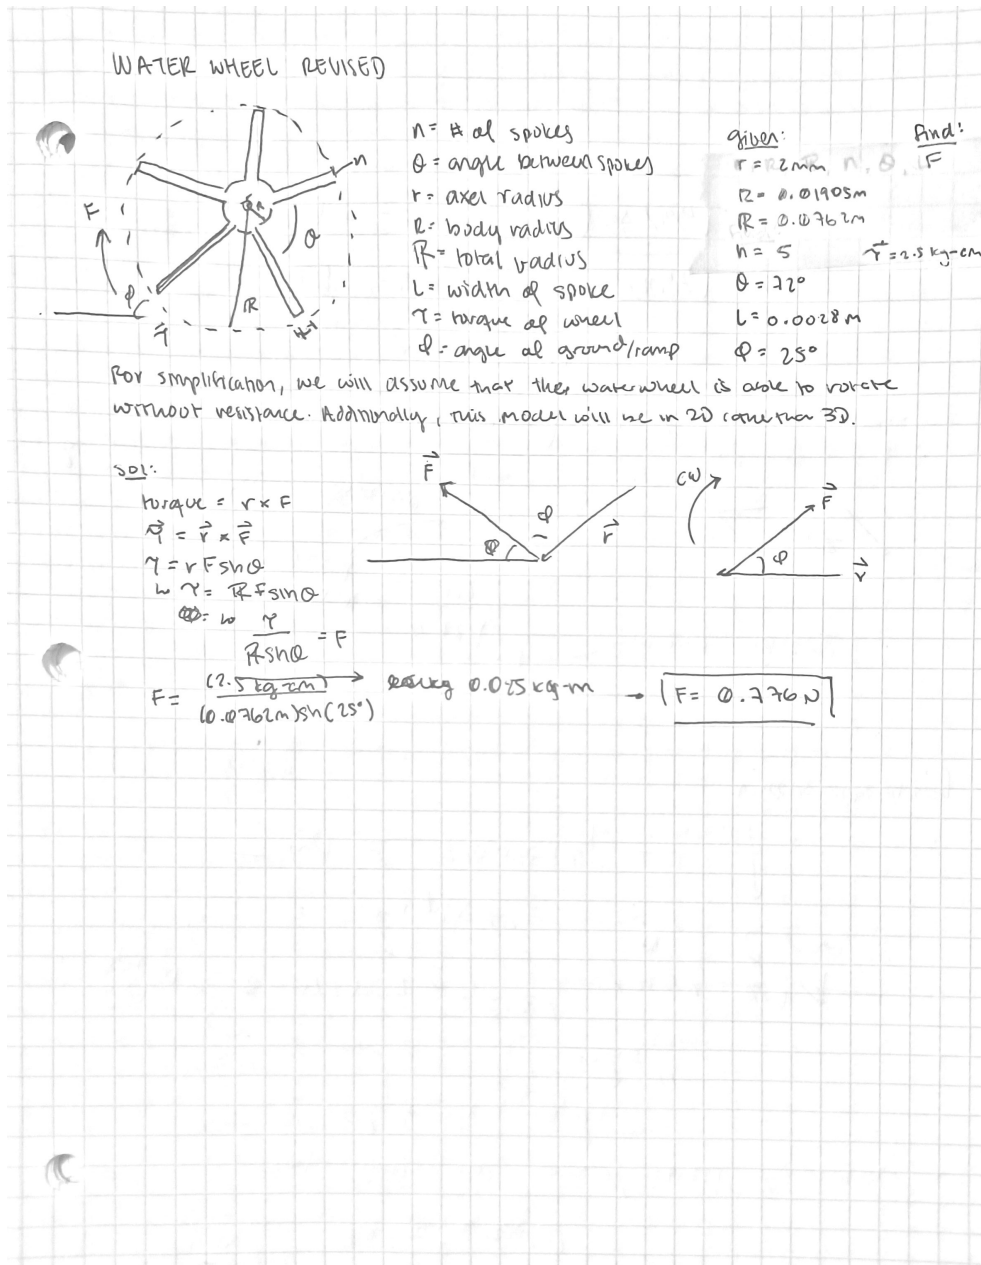 WATER WHEEL REVISED
n
F
θ
φ
R
n = # of spokes
θ = angle between spokes
r = axel radius
R = body radius
ℝ = total radius
L = width of spoke
τ = torque of wheel
φ = angle of ground/ramp
given:
r = 2mm
R = 0.01905m
ℝ = 0.0762m
n = 5
τ⃗ = 2.5 kg-cm
θ = 72°
L = 0.0028m
φ = 25°
find:
F
For simplification, we will assume that the waterwheel is able to rotate
without resistance. Additionally, this model will be in 2D rather than 3D.
sol:
torque = r × F
τ⃗ = r⃗ × F⃗
τ = rFsinθ
↳ τ = ℝFsinθ
↳ τ / ℝsinθ = F
F⃗
φ
φ
r⃗
CW
F⃗
φ
r⃗
F = (2.5 kg-cm) / (0.0762m)sin(25°) → 0.025 kg-m → F = 0.776 N